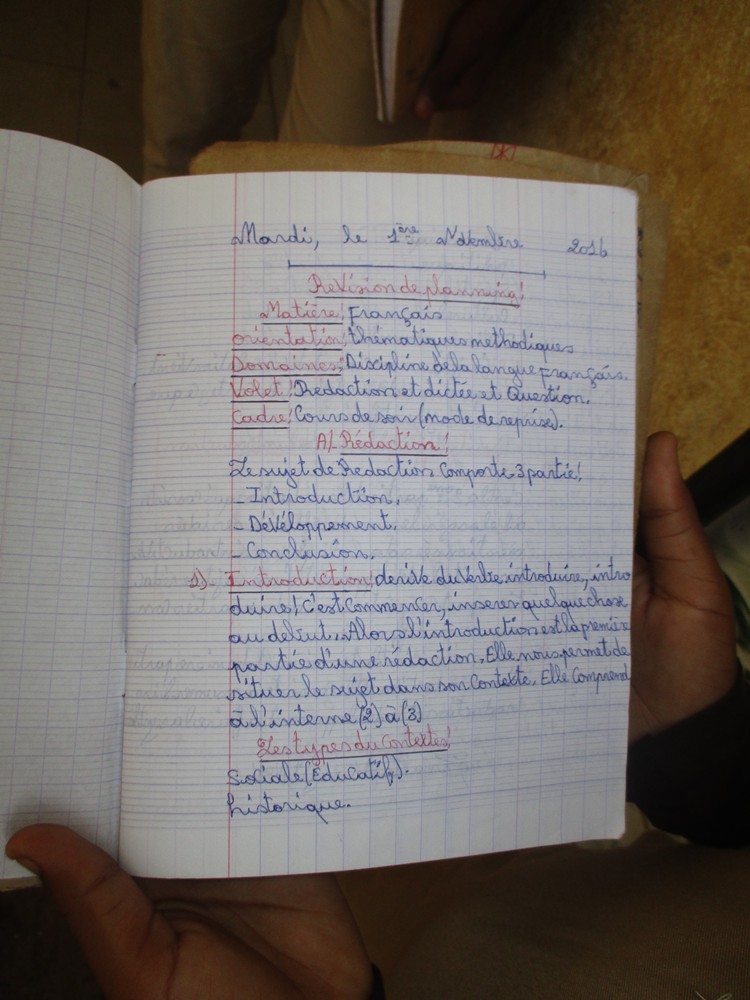 Mardi, le 1ère Novembre 2016
Révision de planning!
Matière! Français
orientation! thématiques methodiques
Domaines! Discipline de la langue français.
Volet! Redaction et dictée et Question.
Cadre! Cours de soir (mode de reprise).
A/. Rédaction!
Le sujet de Redaction Comporte 3 partie!
- Introduction.
- Dévéloppement.
- Conclusion.
1)- Introduction! derive du verbe introduire, intro
duire! C'est Commencer, inserer quelque chose
au debut. Alors l'introduction est la première
partie d'une rédaction. Elle nous permet de
situer le sujet dans son Contexte. Elle Comprend
à l'interne (2) à (3)
Les types du contextes!
Sociale (Éducatif).
historique.